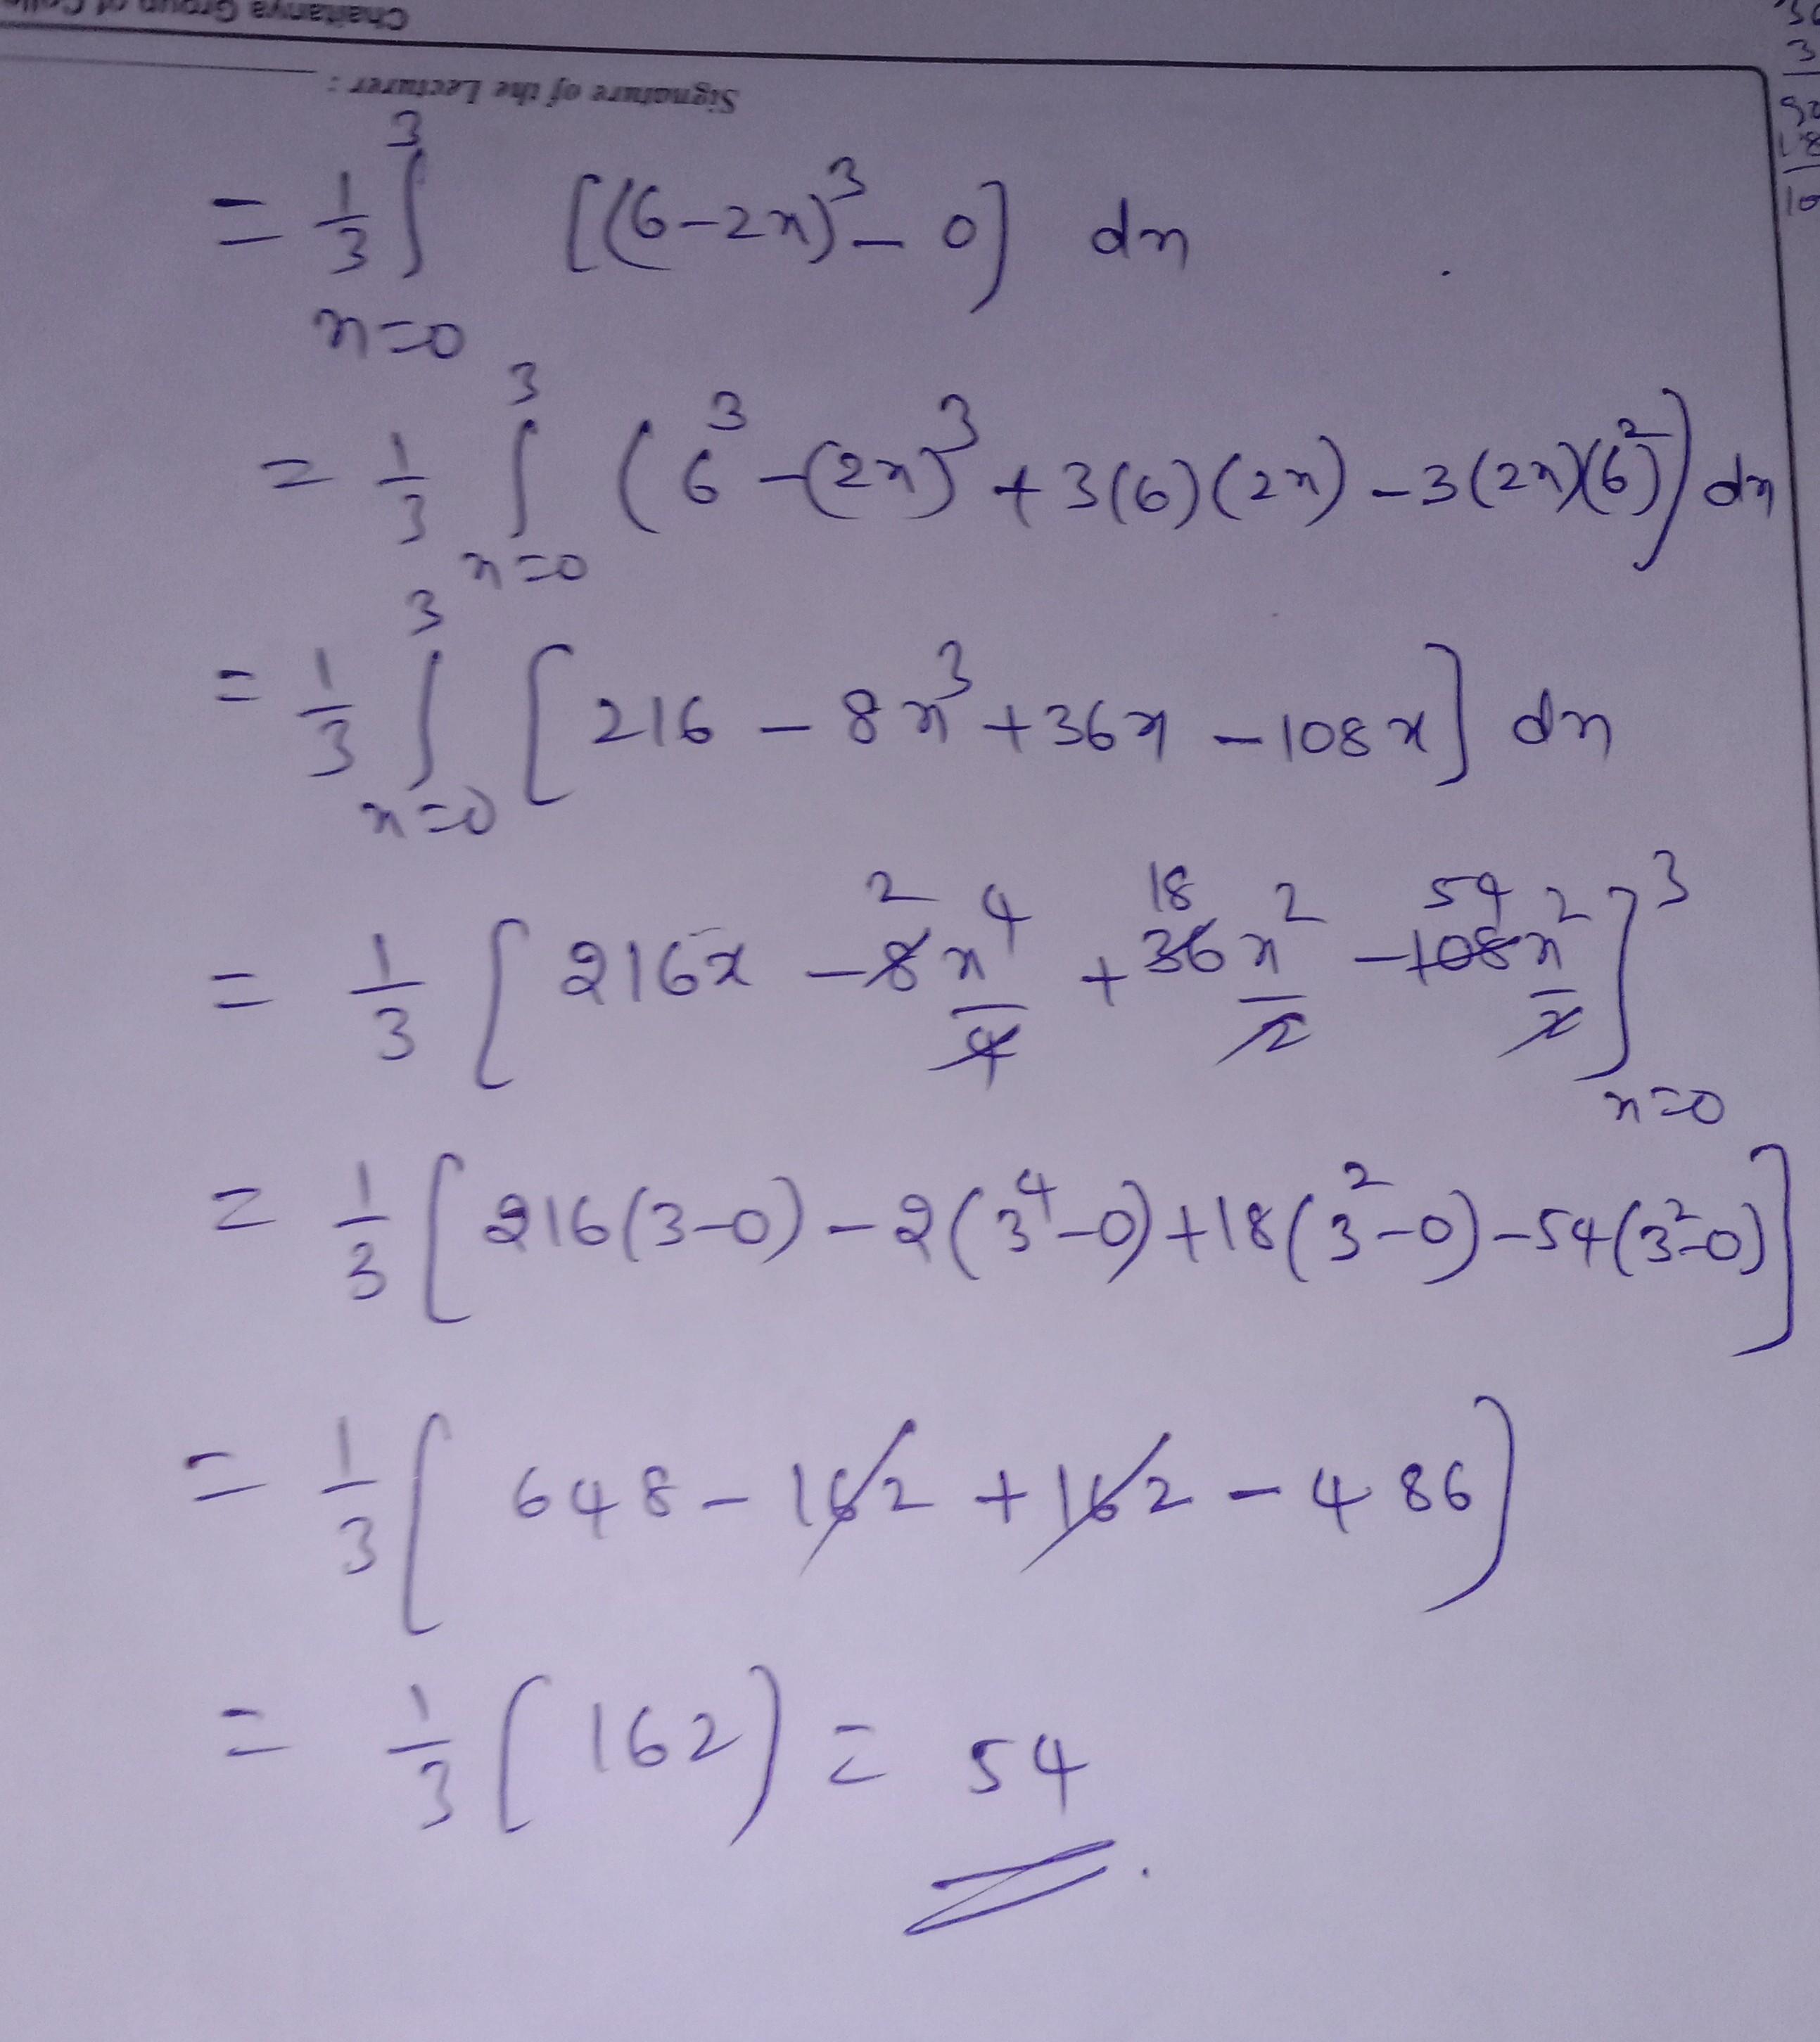 Chaitanya Group of
Signature of the Lecturer :
= 1/3 ∫_{x=0}^{3} [(6-2x)^3 - 0] dx
= 1/3 ∫_{x=0}^{3} (6^3 - (2x)^3 + 3(6)(2x) - 3(2x)(6^2)) dx
= 1/3 ∫_{x=0}^{3} [216 - 8x^3 + 36x - 108x] dx
= 1/3 [216x - 8 2 x^4/4 + 36 18 x^2/2 - 108 54 x^2/2]_{x=0}^{3}
= 1/3 [216(3-0) - 2(3^4-0) + 18(3^2-0) - 54(3^2-0)]
= 1/3 [648 - 162 + 162 - 486)
= 1/3 (162) = 54.